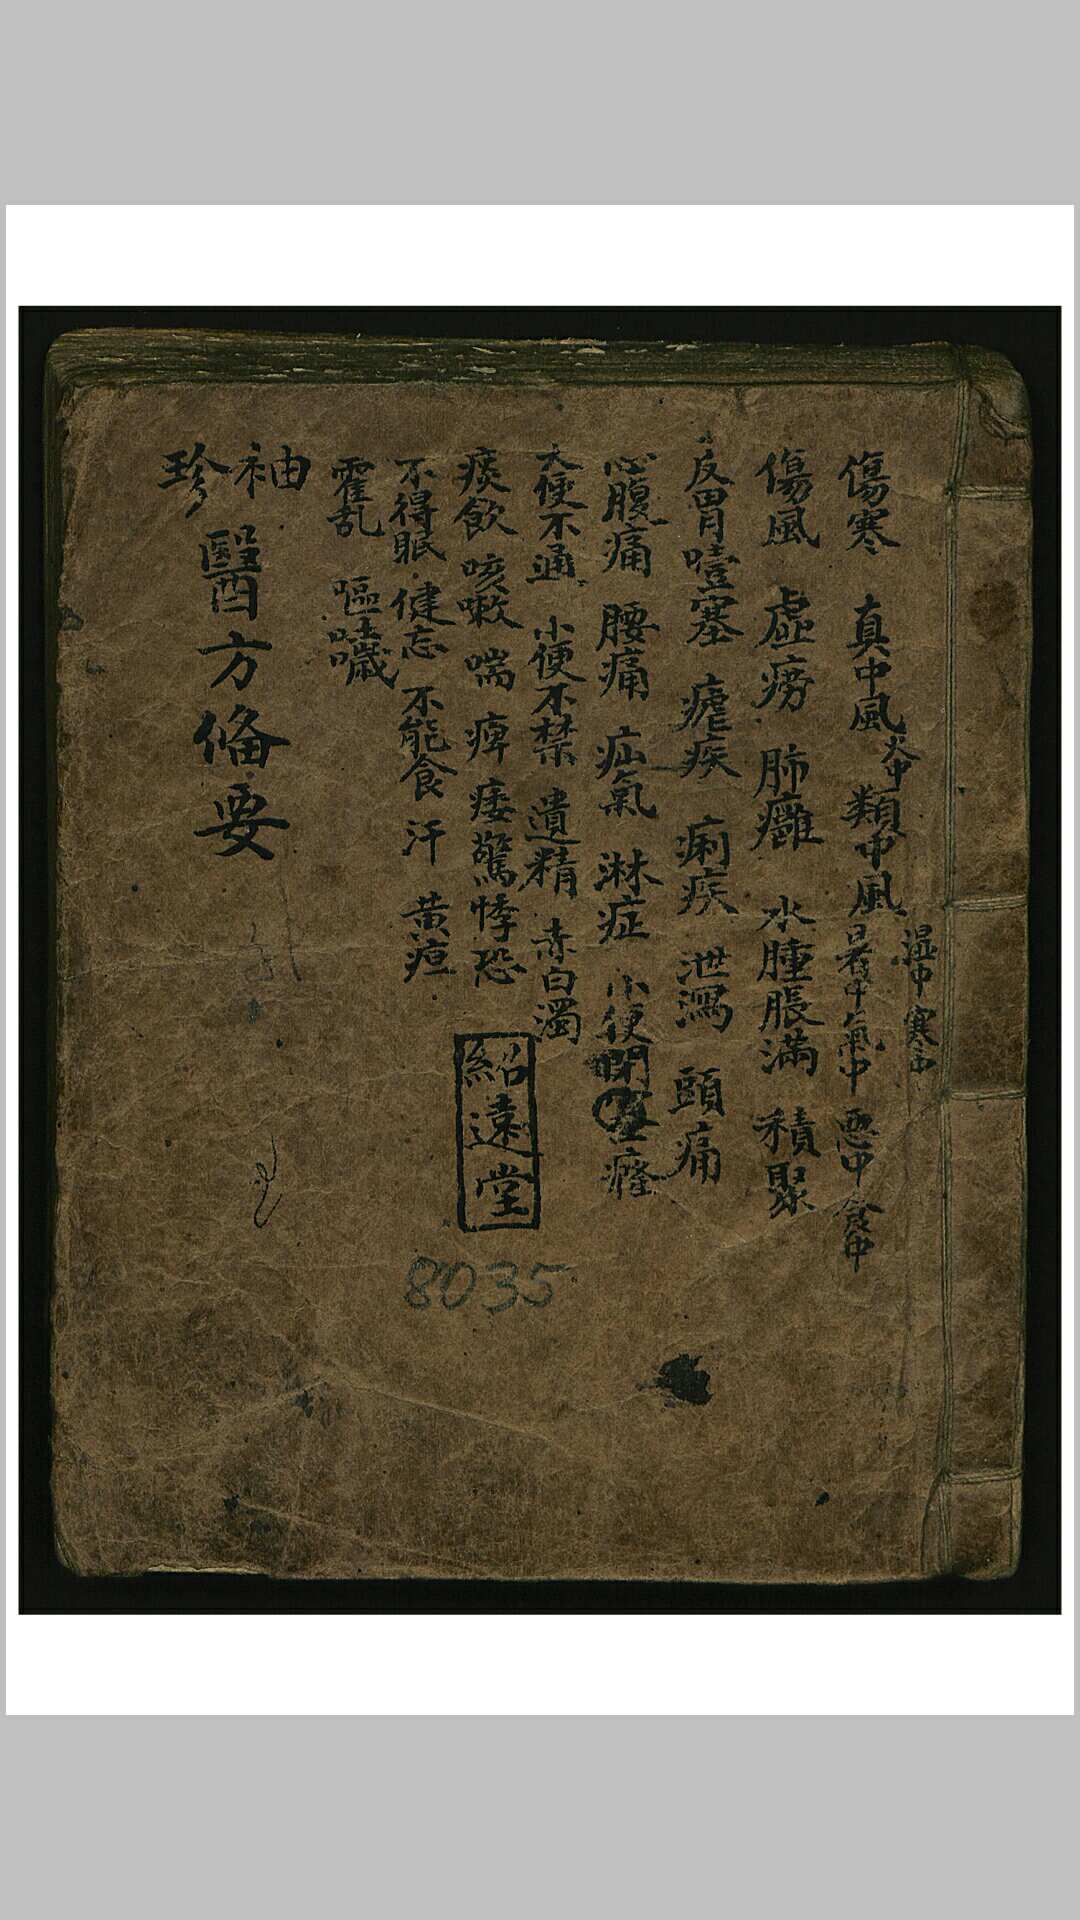 傷寒 真中風 火中 類中風 暑中 氣中 惡中 食中
湿中 寒中
傷風 虛癆 肺癰 水腫脹滿 積聚
反胃噎塞 瘧疾 痢疾 泄瀉 頭痛
心腹痛 腰痛 疝氣 淋症 小便閉 癃
大便不通 小便不禁 遺精 赤白濁
痰飲 咳嗽 喘 痺 痿 驚悸恐
不得眠 健忘 不能食 汗 黄疸
霍乱 嘔吐噦
袖珍
醫方俻要
紹遠堂
8035